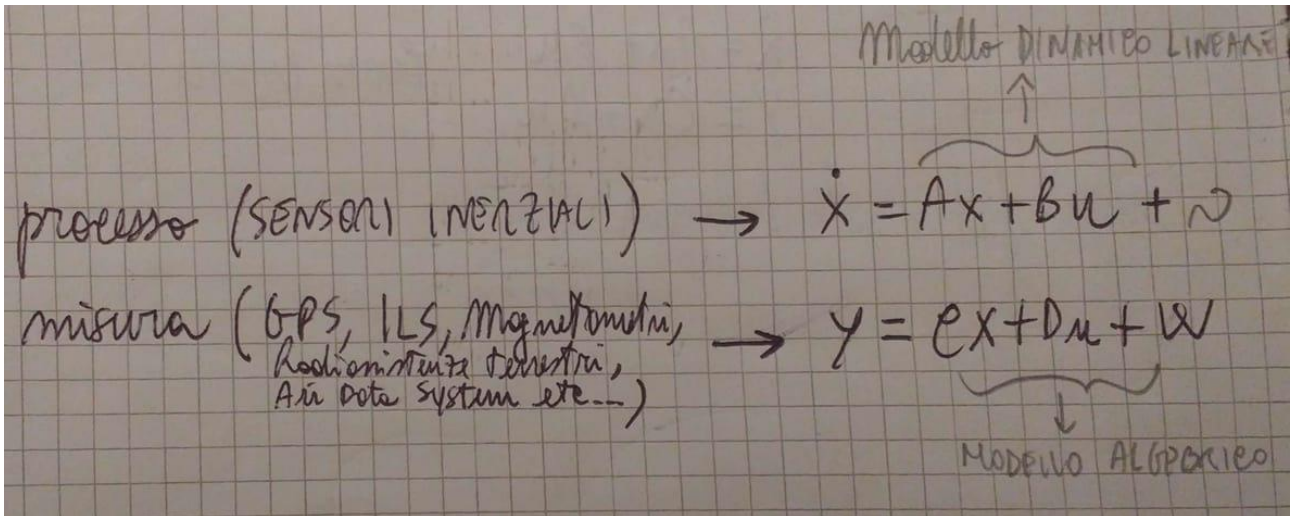 Modello DINAMICO LINEARE
processo (SENSORI INERZIALI) → ẋ = Ax + Bu + v
misura (GPS, ILS, Magnetometri, → y = Cx + Du + w
Radioassistenze terrestri,
Air Data System etc...)
MODELLO ALGEBRICO